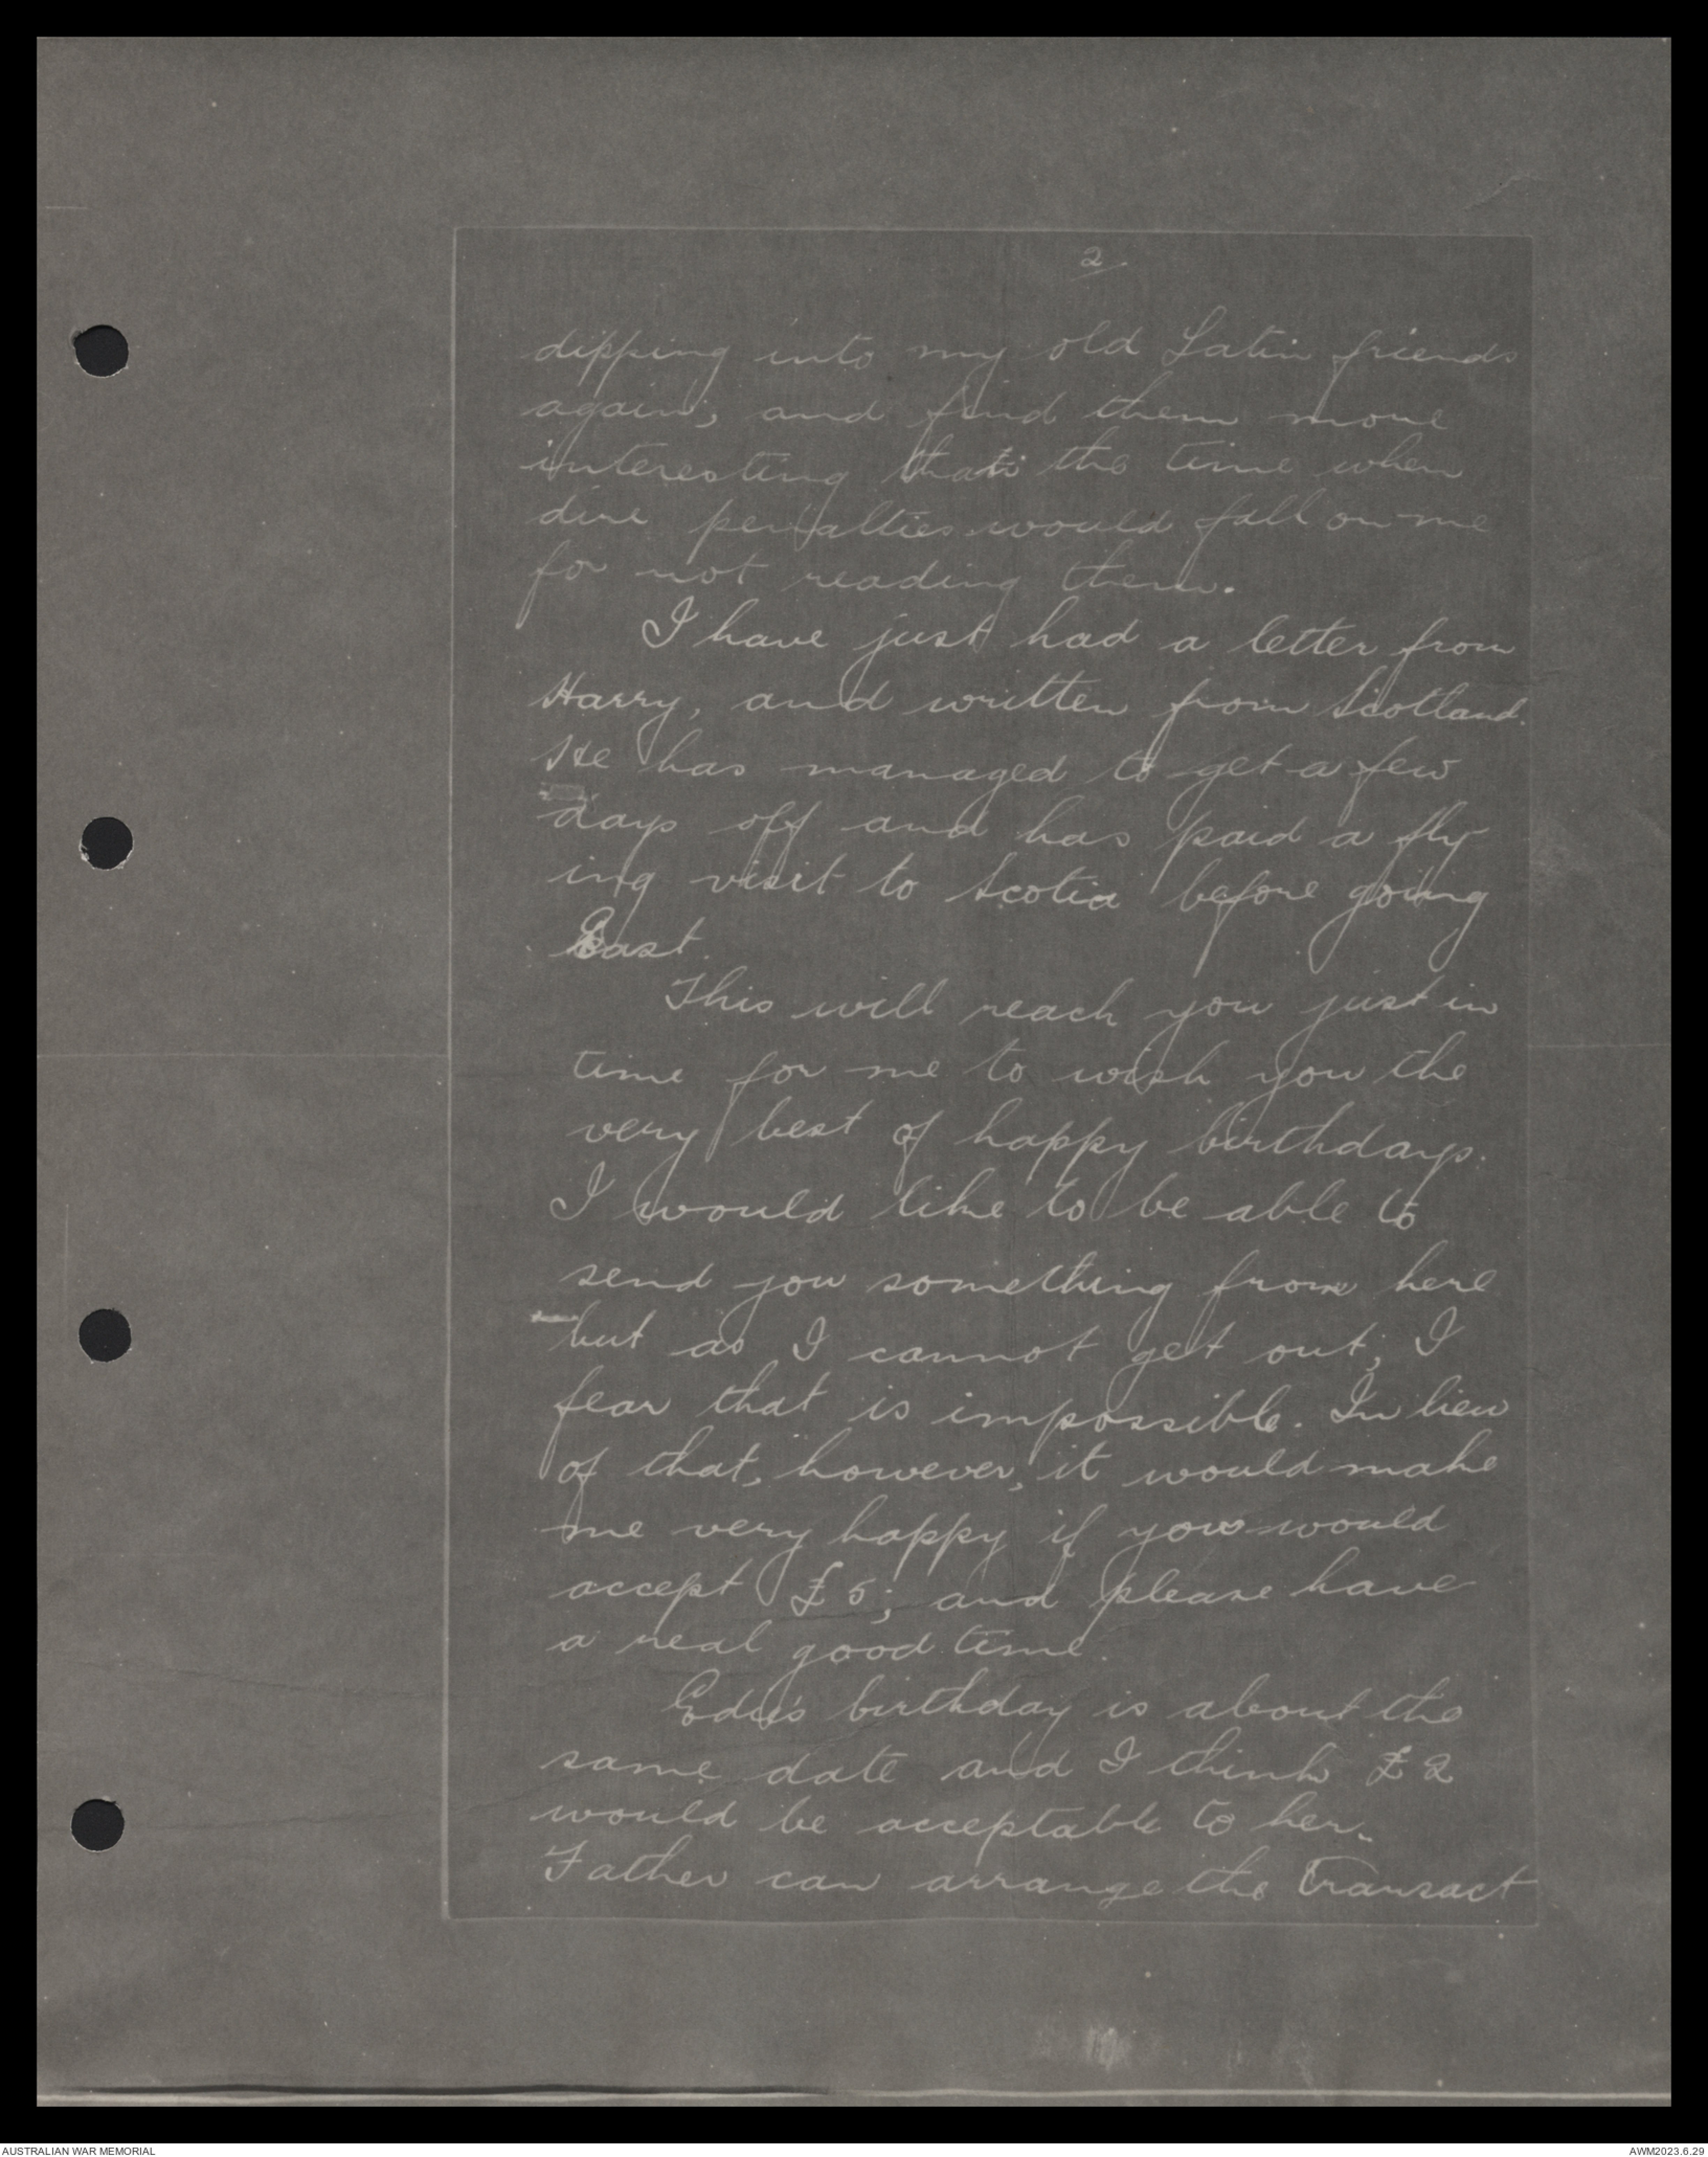 2
dipping into my old Latin friends
again; and find them more
interesting than the time when
dire penalties would fall on me
for not reading them.
I have just had a letter from
Harry, and written from Scotland.
He has managed to get a few
days off and has paid a fly
ing visit to Scotia before going
East.
This will reach you just in
time for me to wish you the
very best of happy birthdays.
I would like to be able to
send you something from here
but as I cannot get out, I
fear that is impossible. In lieu
of that, however, it would make
me very happy if you would
accept £5; and please have
a real good time.
Edie's birthday is about the
same date and I think £2
would be acceptable to her.
Father can arrange the transact
AUSTRALIAN WAR MEMORIAL
AWM2023.6.29